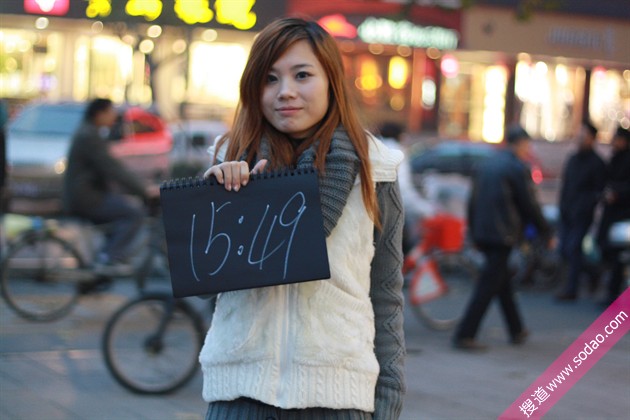 15:49
搜道www.sodao.com